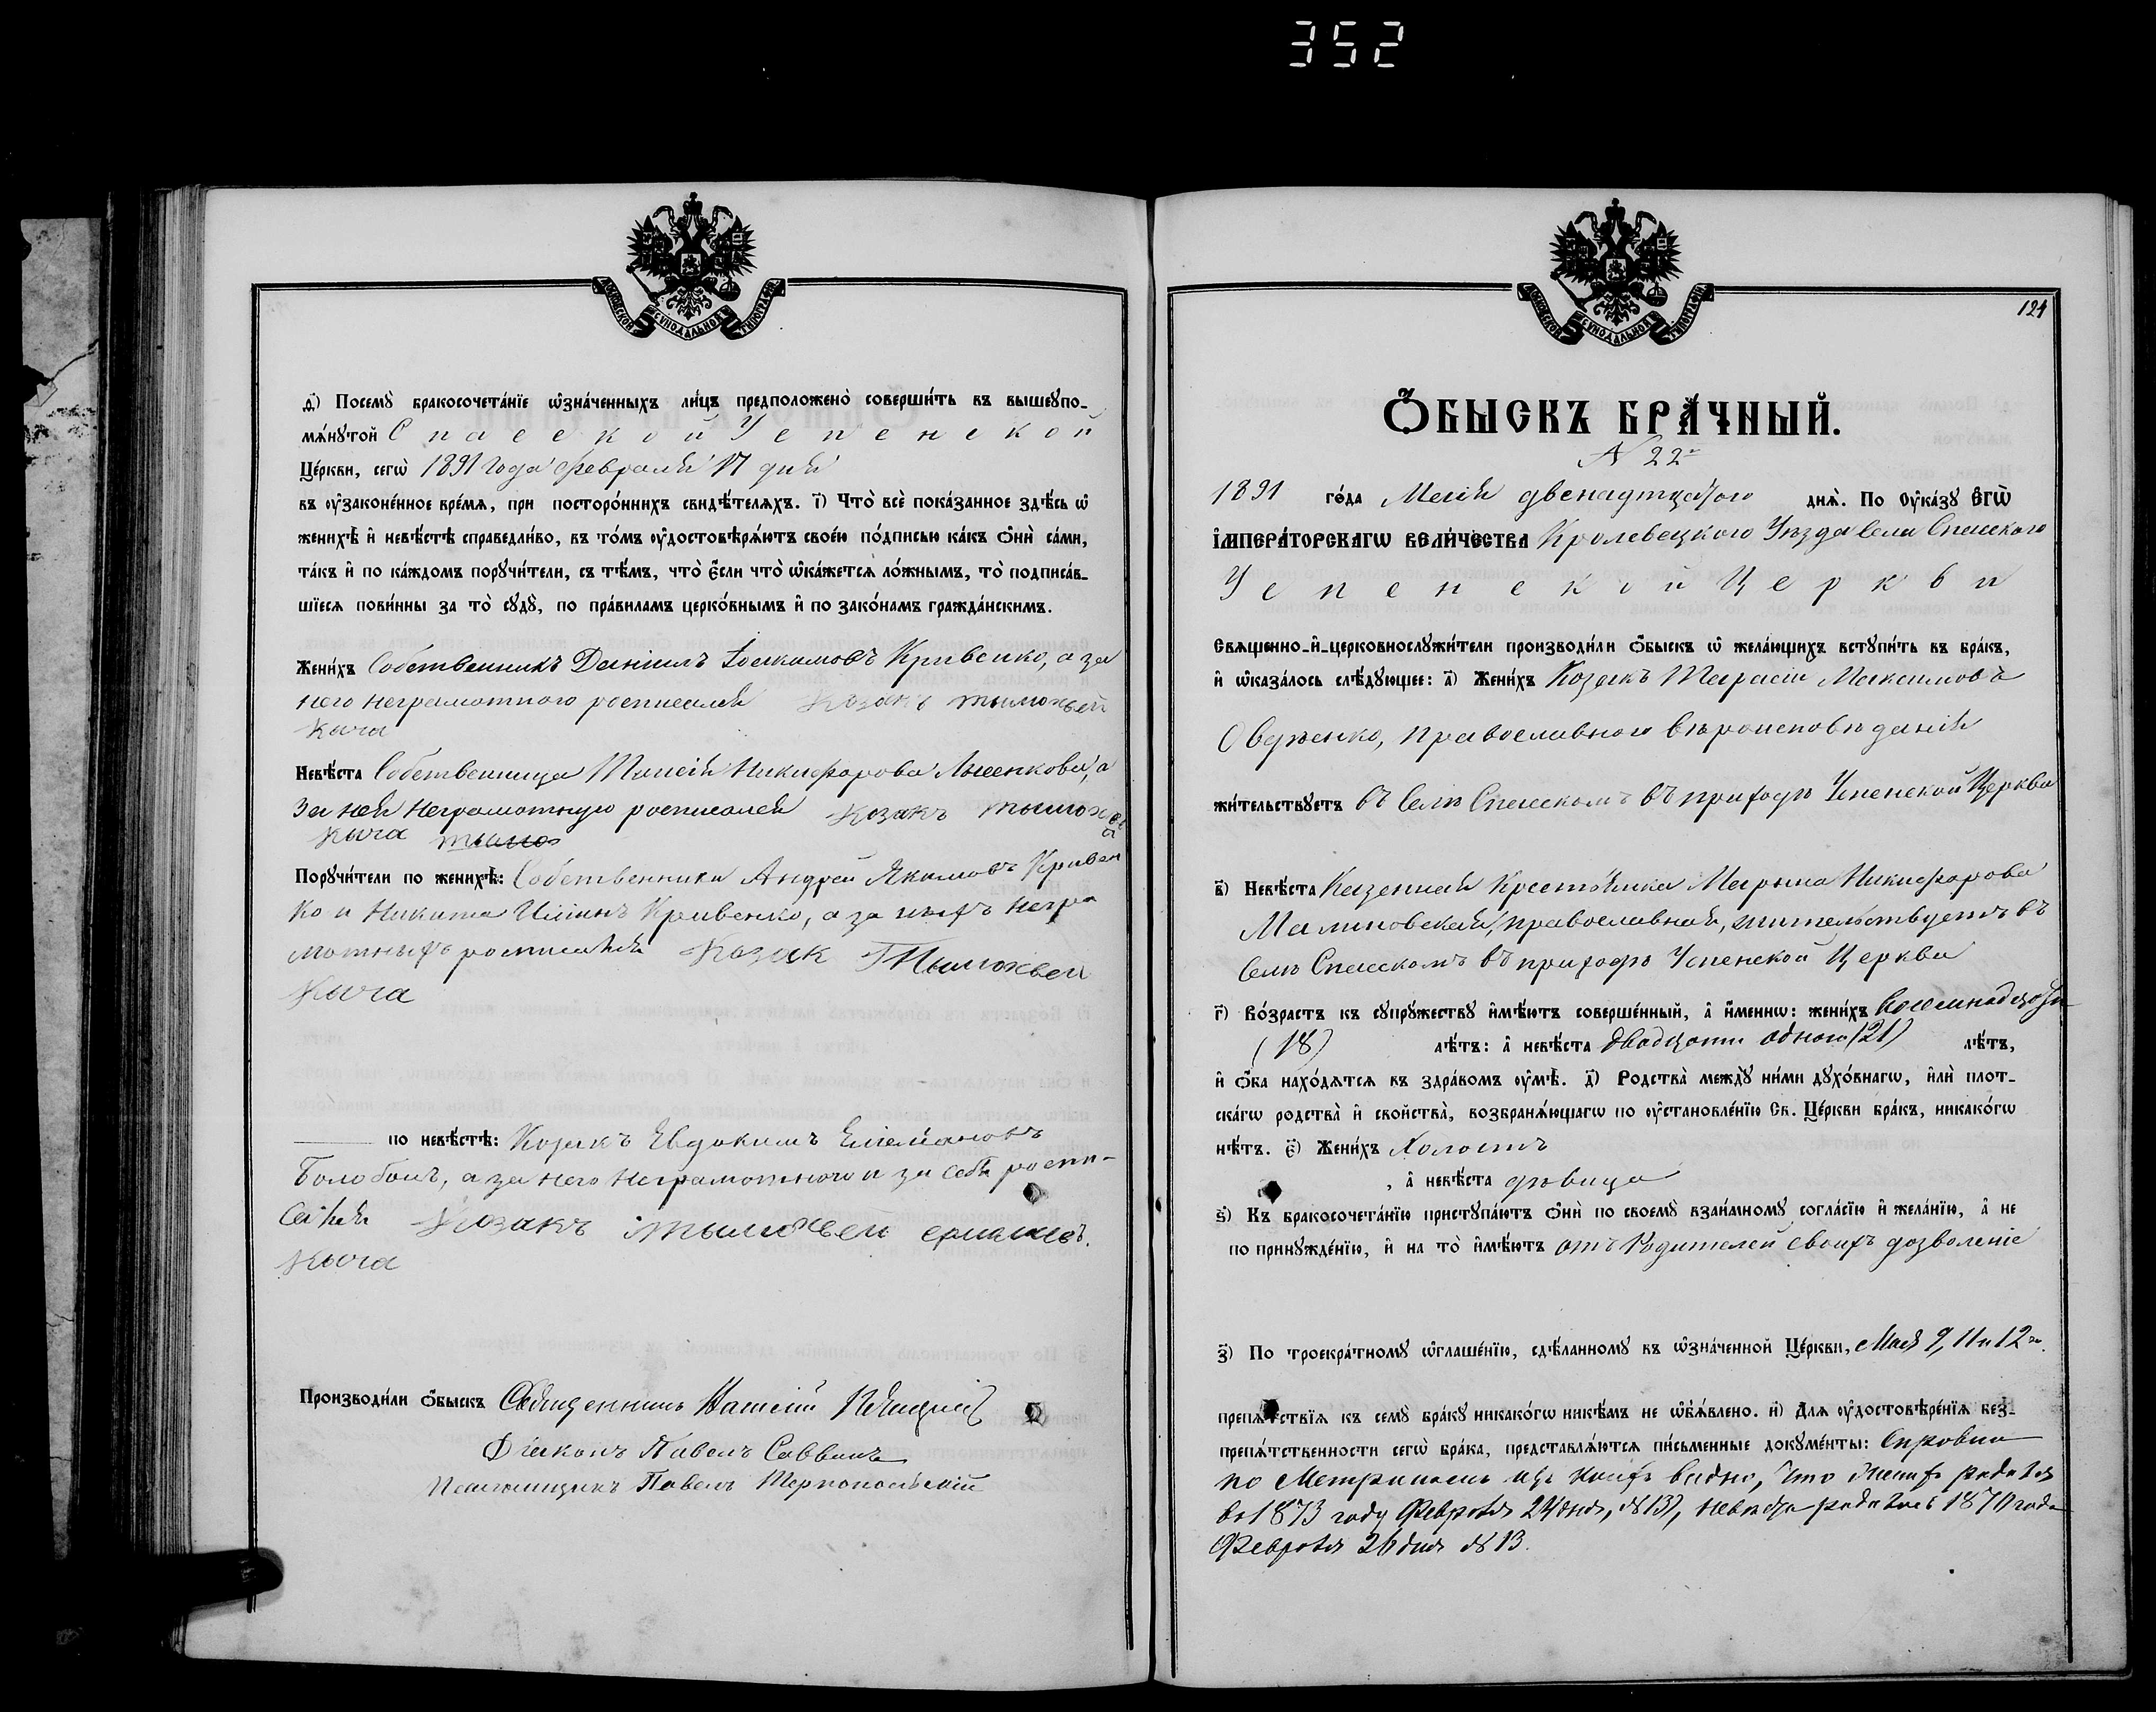 352
МОСКОВСКОЙ СѴНОДАЛЬНОЙ ТИПОГРАФІИ
д҃і) Посемꙋ бракосочета́нїе ѡ҆зна́ченныхъ ли́цъ предположено̀ соверши́ть въ вышеꙋпо-
мѧ́нꙋтой Спасской Успенской
Це́ркви, сегѡ̀ 1891 года февраля 17 дня
въ ᲂу҆законе́нное вре́мѧ, при посторо́ннихъ свидѣ́телѧхъ. і҃) Что̀ всѐ пока́занное здѣ́сь ѡ҆
женихѣ̀ и҆ невѣ́стѣ справедли́во, въ то́мъ ᲂу҆достовѣрѧ́ютъ свое́ю по́дписью ка́къ ѻ҆нѝ са́ми,
та́къ и҆ по ка́ждомъ порꙋчи́тели, съ тѣ́мъ, что̀ є҆́сли что̀ ѡ҆ка́жетсѧ ло́жнымъ, то̀ подписа́в-
шїесѧ пови́нны за то̀ сꙋдꙋ̀, по пра́виламъ церко́внымъ и҆ по зако́намъ гражда́нскимъ.
Жени́хъ Собственникъ Даніилъ Іоакимовъ Кривенко, а за
него неграмотного росписался Козакъ тымохвей
Кыча
Невѣ́ста Собственница Таисія Никифорова Лысенкова, а
за ней неграмотную росписался Козакъ тымохвей
Кыча
Порꙋчи́тели по женихѣ̀: Собственники Андрей Якимовъ Кривен
ко и Никита Кривенко, а за ныхъ негра
мотныхъ росписался Козак Тымохвей
Кыча
по невѣ́стѣ: Козакъ Евдокимъ Емельяновъ
Болобанъ, а за него неграмотного и за себя роспи-
сался Козакъ тымохвей
Кыча
Производи́ли ѻ҆́быскъ Священникъ
Діаконъ Павелъ Саввичъ
Псаломщикъ Павелъ Тернопольскій
МОСКОВСКОЙ СѴНОДАЛЬНОЙ ТИПОГРАФІИ
124
Ѻ҆́БЫСКЪ БРА́ЧНЫЙ.
N 22й
1891 го́да Мая двенадцатого днѧ̀. По Оу҆ка́зꙋ Є҆ГѠ̀
І҆МПЕРА́ТОРСКАГѠ ВЕЛИ́ЧЕСТВА Кролевецкого Уѣзда Села Спасского
Успенскій Церкви
Свѧщенно-и҆-церковнослꙋжи́тели производи́ли ѻ҆́быскъ ѡ҆ жела́ющихъ встꙋпи́ть въ бра́къ,
и҆ ѡ҆каза́лось слѣ́дꙋющее: а҃) Жени́хъ Козакъ Тарасій Максимовъ
Овдѣенко, православного вѣроисповѣданія
жи́тельствꙋетъ въ Селѣ Спасскомъ въ приходѣ Успенской Церкви
в҃) Невѣ́ста Казенная Крестьянка Марына Никифорова
Малиновская, православная, жительствуетъ въ
Селѣ Спасскомъ въ приходѣ Успенской Церкви
г҃) Во́зрастъ къ сꙋпрꙋ́жествꙋ и҆мѣ́ютъ соверше́нный, а҆ и҆́менно: жени́хъ Восемнадцати
(18) лѣ́тъ: а҆ невѣ́ста двадцати одного (21) лѣ́тъ,
и҆ ѻ҆́ба нахо́дѧтсѧ въ здра́вомъ ᲂу҆мѣ̀. д҃) Родства̀ междꙋ̀ ни́ми дꙋхо́внагѡ, и҆лѝ плот-
ска́гѡ родства̀ и҆ свойства̀, возбранѧ́ющагѡ по ᲂу҆становле́нїю Св. Це́ркви бра́къ, никако́гѡ
нѣ́тъ. є҃) Жени́хъ Холостъ
, а҆ невѣ́ста дѣвица
ѕ҃) Къ бракосочета́нїю пристꙋпа́ютъ ѻ҆нѝ по своемꙋ̀ взаи́мномꙋ согла́сїю и҆ жела́нїю, а҆ не
по принꙋжде́нїю, и҆ на то̀ и҆мѣ́ютъ отъ Родителей своихъ дозволеніе
з҃) По троекра́тномꙋ ѡ҆глаше́нїю, сдѣ́ланномꙋ въ ѡ҆зна́ченной Це́ркви, Мая 9, 11 и 12го
препѧ́тствїѧ къ семꙋ̀ бра́кꙋ никако́гѡ никѣ́мъ не ѡ҆б̾ѧ́влено. и҃) Длѧ ᲂу҆достовѣре́нїѧ без-
препѧ́тственности сегѡ̀ бра́ка, представлѧ́ютсѧ пи́сьменные докꙋме́нты: Справка
по Метрикамъ изъ коихъ видно, что женихъ родился
въ 1873 году Февраля 24 дня, №13, невѣста родилась 1870 года
Февраля 26 дня №13.